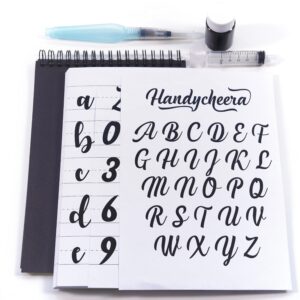 Handycheera
A B C D E F
G H I J K L
M N O P Q
R S T U V
W X Y Z
a 2
b 0
c 3
d 6
e 9